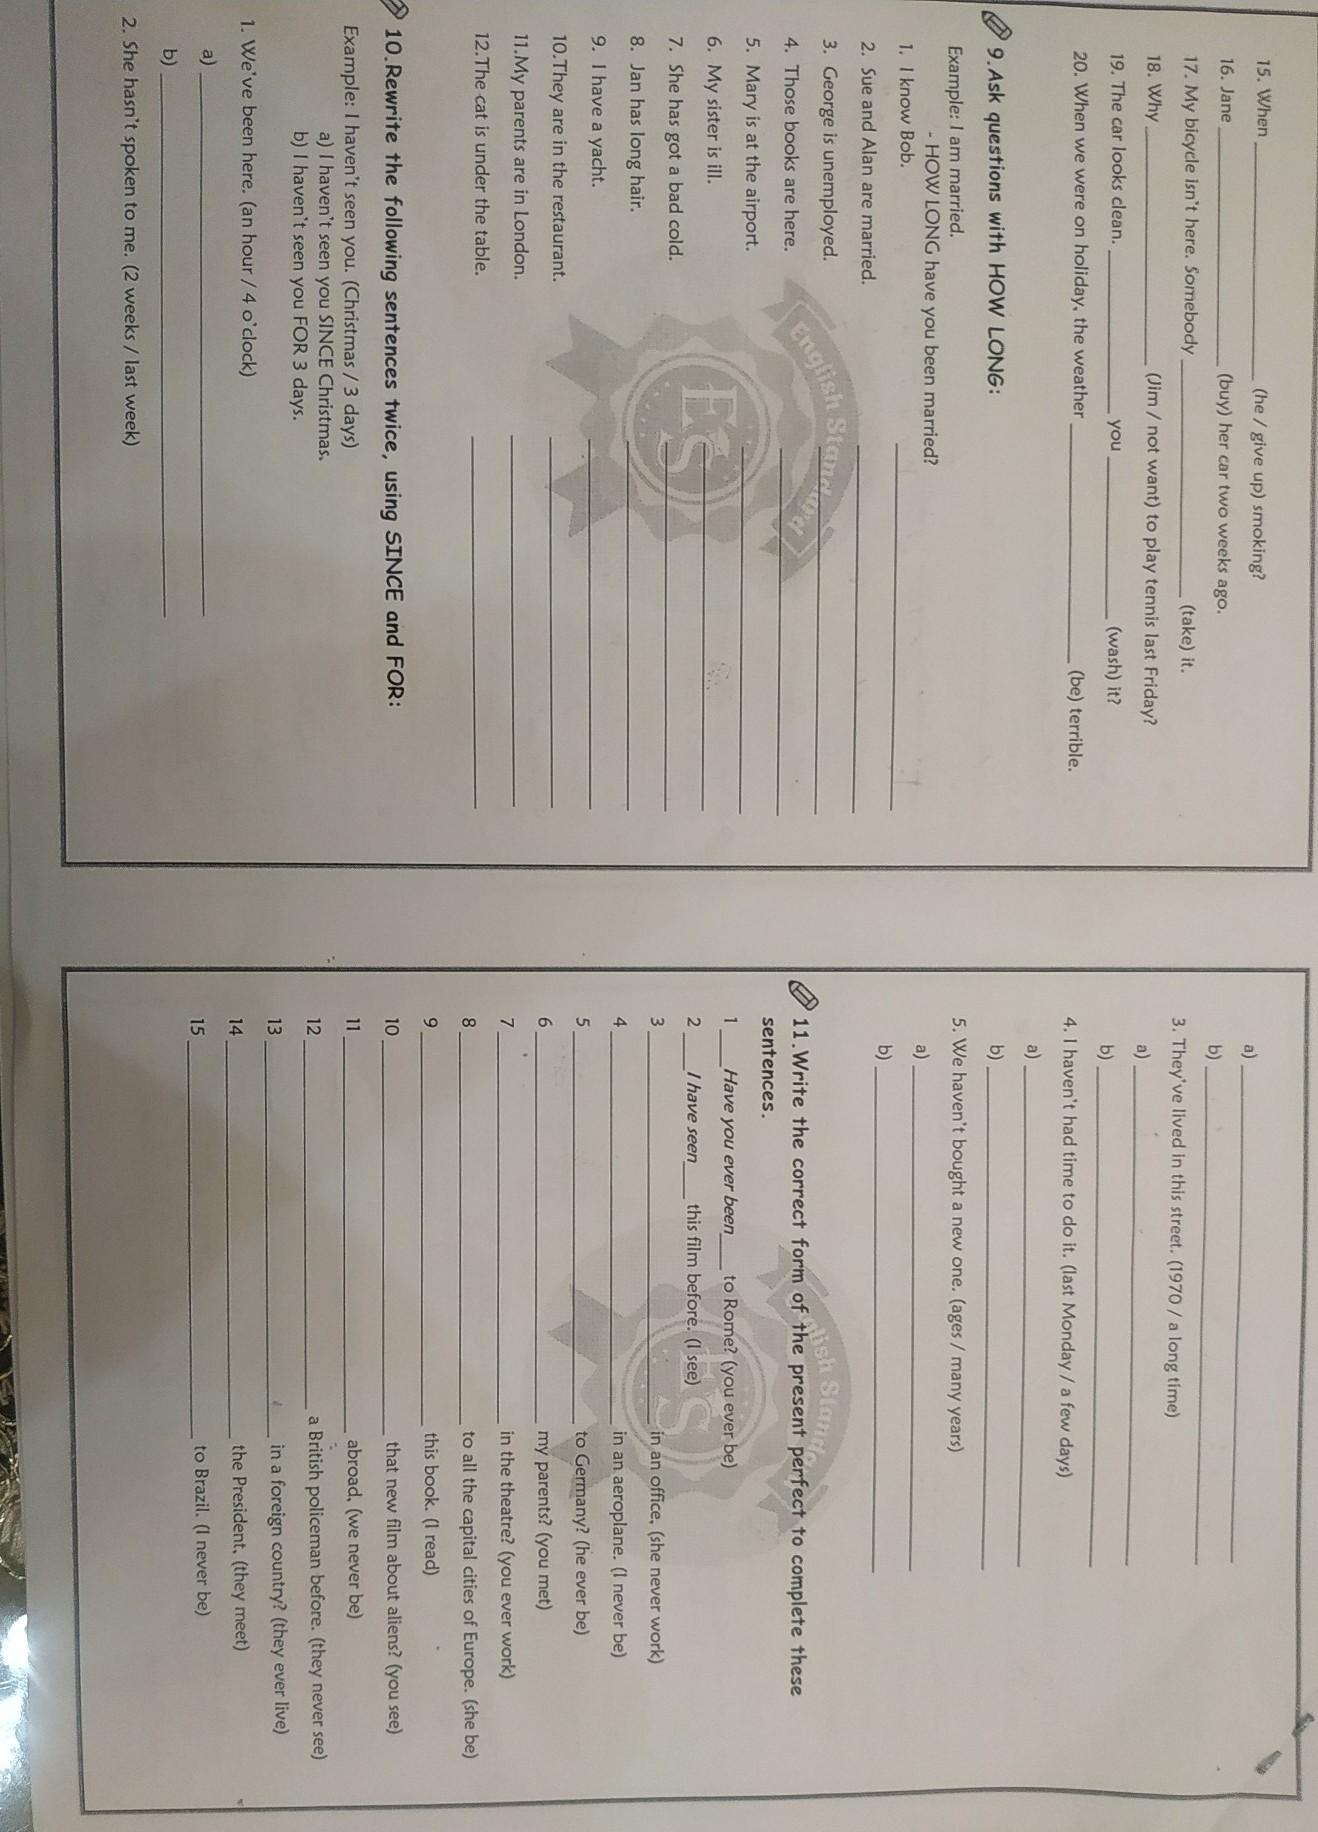 15. When ____________ (he / give up) smoking?
16. Jane ____________ (buy) her car two weeks ago.
17. My bicycle isn't here. Somebody ____________ (take) it.
18. Why ____________ (Jim / not want) to play tennis last Friday?
19. The car looks clean. ____________ you ____________ (wash) it?
20. When we were on holiday, the weather ____________ (be) terrible.
9. Ask questions with HOW LONG:
Example: I am married.
- HOW LONG have you been married?
1. I know Bob. ____________
2. Sue and Alan are married. ____________
3. George is unemployed. ____________
4. Those books are here. ____________
5. Mary is at the airport. ____________
6. My sister is ill. ____________
7. She has got a bad cold. ____________
8. Jan has long hair. ____________
9. I have a yacht. ____________
10. They are in the restaurant. ____________
11. My parents are in London. ____________
12. The cat is under the table. ____________
English Standard
ES
10. Rewrite the following sentences twice, using SINCE and FOR:
Example: I haven't seen you. (Christmas / 3 days)
a) I haven't seen you SINCE Christmas.
b) I haven't seen you FOR 3 days.
1. We've been here. (an hour / 4 o'clock)
a) ____________
b) ____________
2. She hasn't spoken to me. (2 weeks / last week)
a) ____________
b) ____________
3. They've lived in this street. (1970 / a long time)
a) ____________
b) ____________
4. I haven't had time to do it. (last Monday / a few days)
a) ____________
b) ____________
5. We haven't bought a new one. (ages / many years)
a) ____________
b) ____________
11. Write the correct form of the present perfect to complete these
sentences.
1 ____Have you ever been____ to Rome? (you ever be)
2 ____I have seen____ this film before. (I see)
3 ____________ in an office, (she never work)
4 ____________ in an aeroplane. (I never be)
5 ____________ to Germany? (he ever be)
6 ____________ my parents? (you met)
7 ____________ in the theatre? (you ever work)
8 ____________ to all the capital cities of Europe. (she be)
9 ____________ this book. (I read)
10 ____________ that new film about aliens? (you see)
11 ____________ abroad, (we never be)
12 ____________ a British policeman before. (they never see)
13 ____________ in a foreign country? (they ever live)
14 ____________ the President, (they meet)
15 ____________ to Brazil. (I never be)
ES